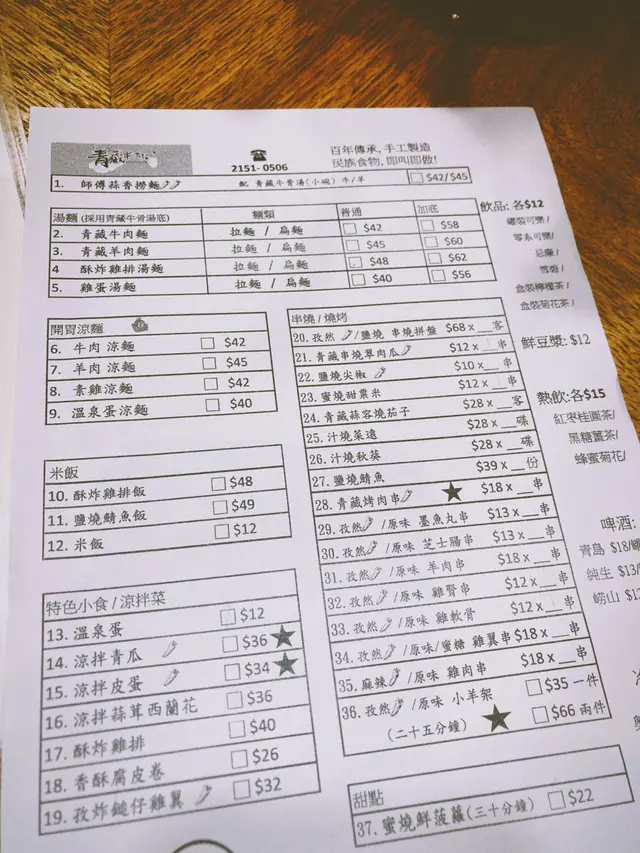 青藏
☎
2151-0506
百年傳承, 手工製造
民族食物, 即叫即做!
1. 師傅蒜香撈麵 配 青藏牛骨湯(小碗) 牛/羊 $42/$45
湯麵 (採用青藏牛骨湯底) 麵類 普通 加底
2. 青藏牛肉麵 拉麵 / 扁麵 $42 $58
3. 青藏羊肉麵 拉麵 / 扁麵 $45 $60
4 酥炸雞排湯麵 拉麵 / 扁麵 $48 $62
5. 雞蛋湯麵 拉麵 / 扁麵 $40 $56
開胃涼麵
6. 牛肉 涼麵 $42
7. 羊肉 涼麵 $45
8. 素雞涼麵 $42
9. 溫泉蛋涼麵 $40
米飯
10. 酥炸雞排飯 $48
11. 鹽燒鯖魚飯 $49
12. 米飯 $12
特色小食 / 涼拌菜
13. 溫泉蛋 $12
14. 涼拌青瓜 $36 ★
15. 涼拌皮蛋 $34 ★
16. 涼拌蒜茸西蘭花 $36
17. 酥炸雞排 $40
18. 香酥腐皮卷 $26
19. 孜炸鎚仔雞翼 $32
串燒 / 燒烤
20. 孜然 /鹽燒 串燒拼盤 $68 x __客
21. 青藏串燒翠肉瓜 $12 x __串
22. 鹽燒尖椒 $10 x __串
23. 蜜燒甜粟米 $12 x __串
24. 青藏蒜容燒茄子 $28 x __客
25. 汁燒菜遠 $28 x __碟
26. 汁燒秋葵 $28 x __碟
27. 鹽燒鯖魚 $39 x __份
28. 青藏烤肉串 ★ $18 x __串
29. 孜然 /原味 墨魚丸串 $13 x __串
30. 孜然 /原味 芝士腸串 $13 x __串
31. 孜然 /原味 羊肉串 $18 x __串
32. 孜然 /原味 雞腎串 $12 x __串
33. 孜然 /原味 雞軟骨 $12 x __串
34. 孜然 /原味/蜜糖 雞翼串 $18 x __串
35. 麻辣 /原味 雞肉串 $18 x __串
36. 孜然 /原味 小羊架 $35 一件
(二十五分鐘) ★ $66 兩件
甜點
37. 蜜燒鮮菠蘿(三十分鐘) $22
飲品: 各$12
罐裝可樂/
零系可樂/
忌廉/
雪碧/
盒裝檸檬茶/
盒裝菊花茶/
鮮豆漿: $12
熱飲:各$15
紅棗桂圓茶/
黑糖薑茶/
蜂蜜菊花/
啤酒:
青島 $18/
純生 $13/
嶗山